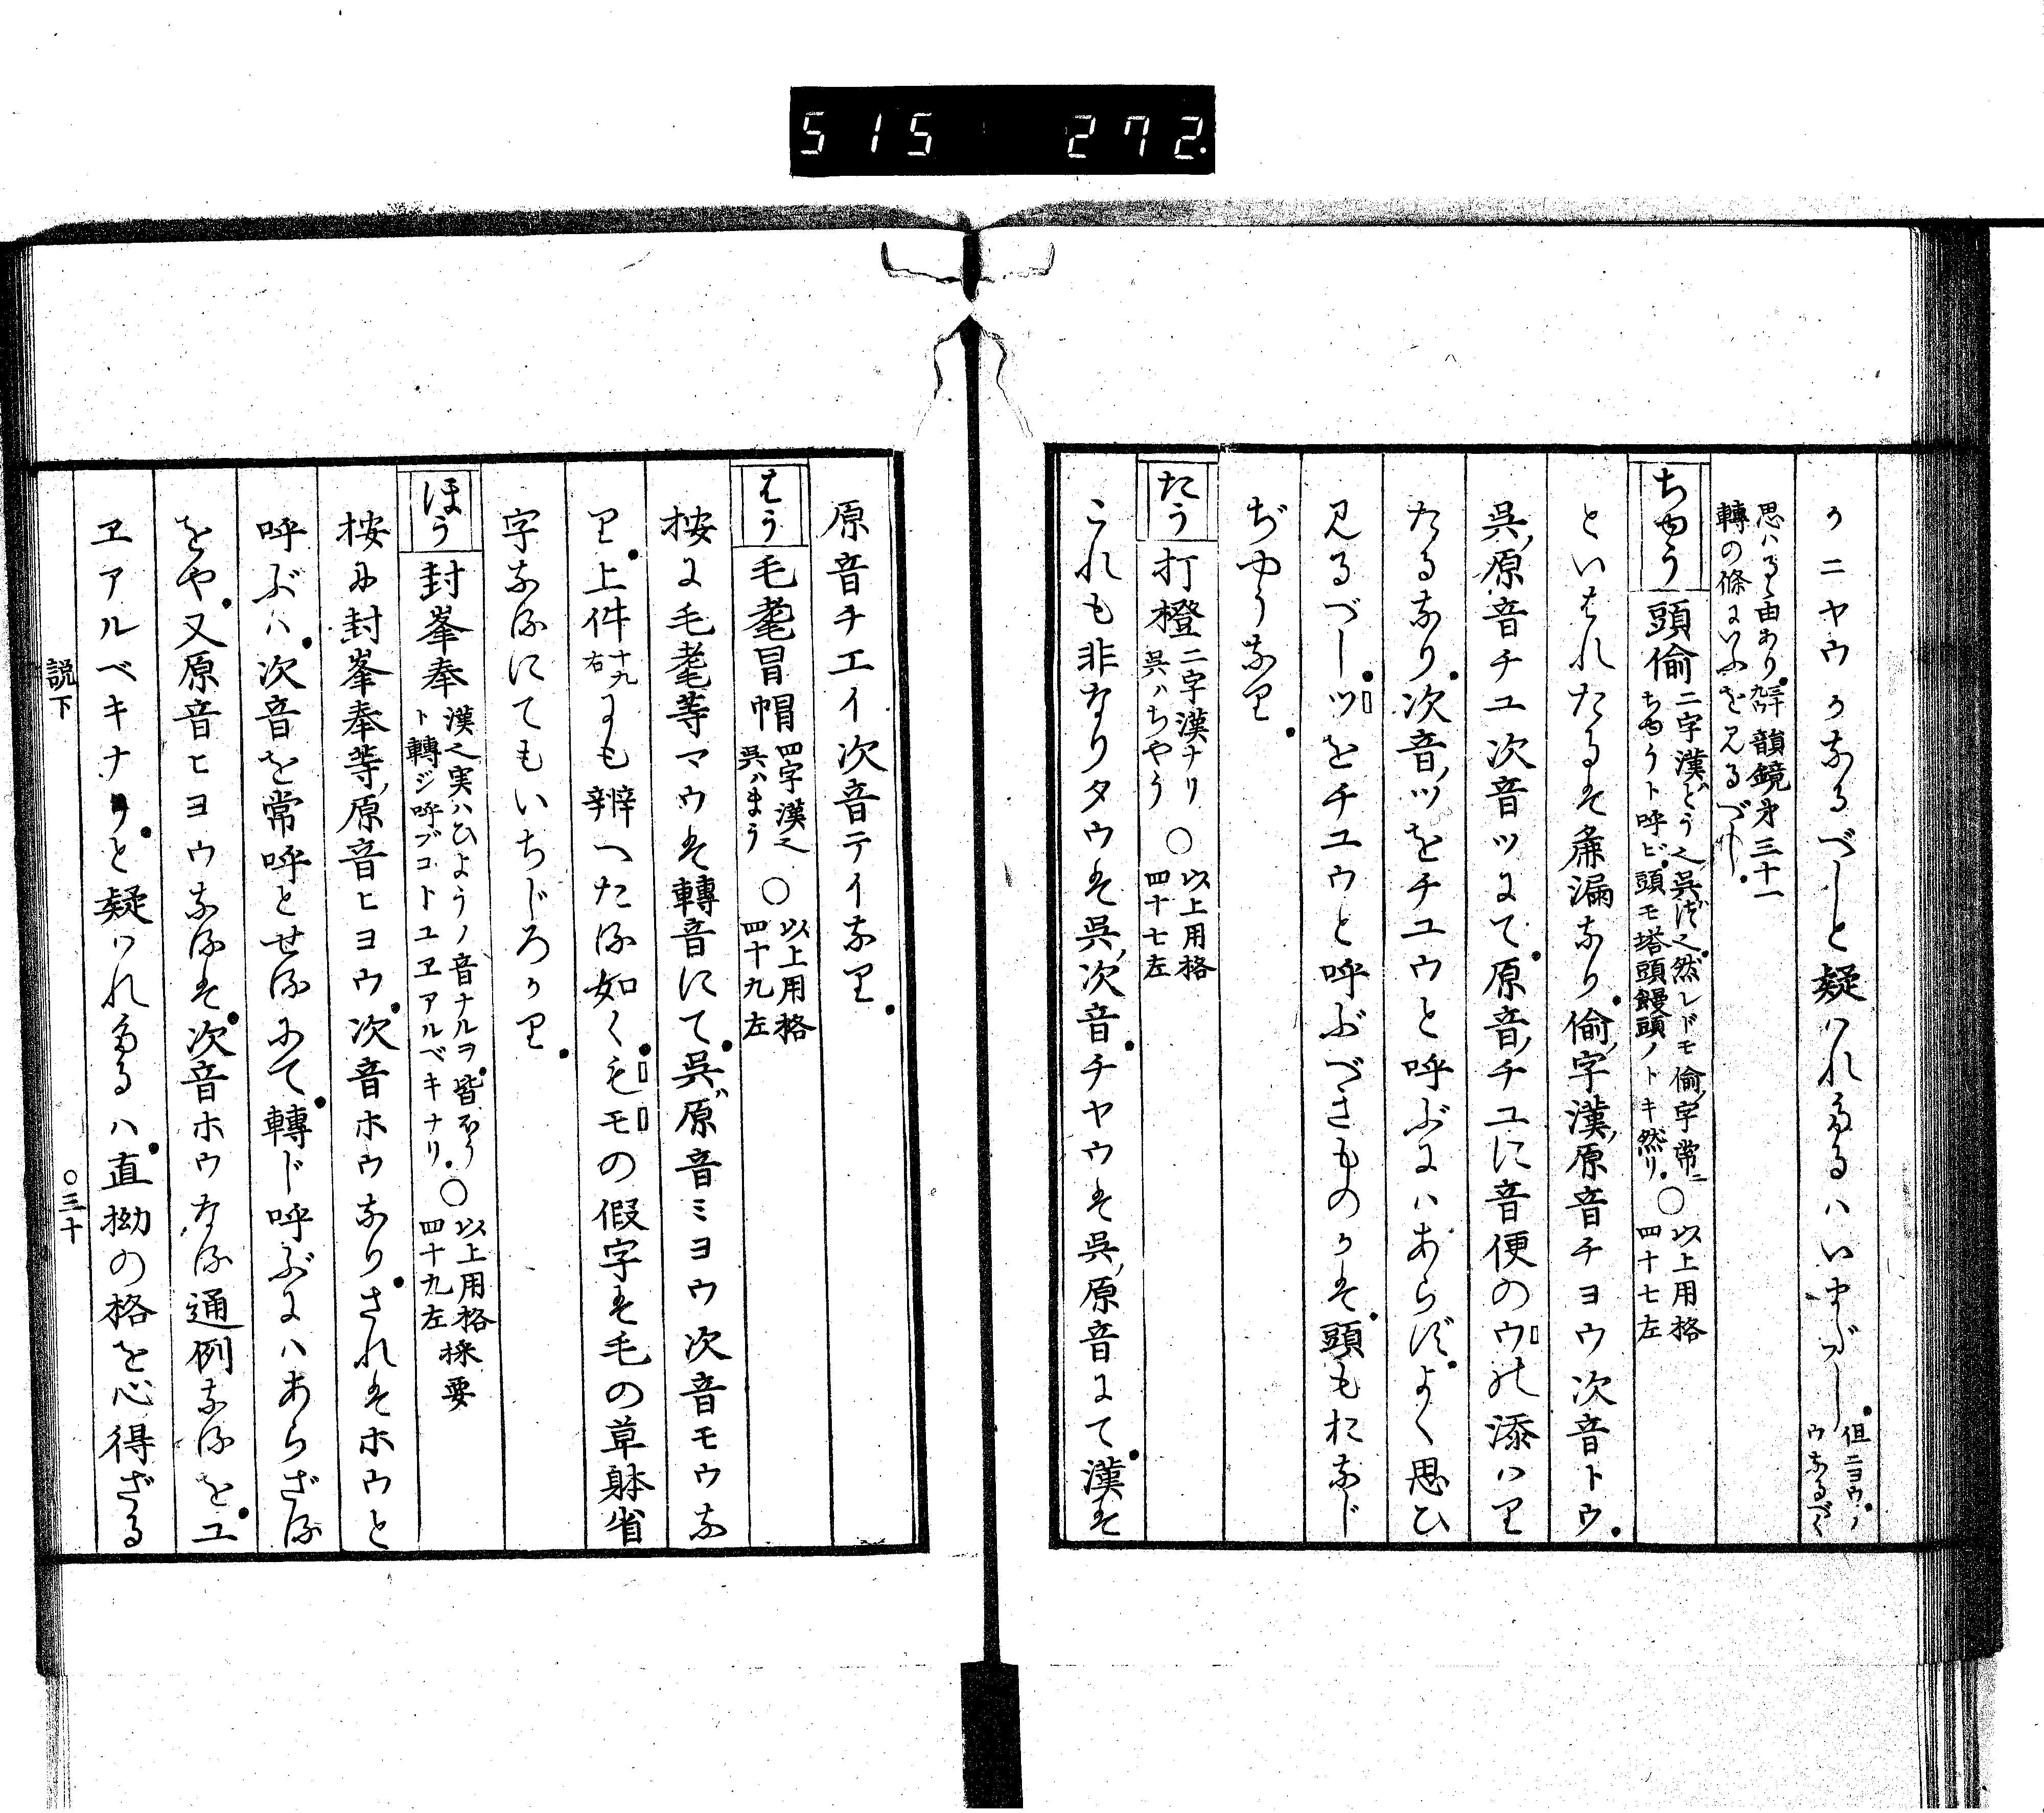 515 272.
かニヤウかなるべしと疑はれたるはいまだし。但ニヨウノ
ウなるべく
思はるゝ由あり。韻鏡第三十一
轉の條にいふを見るべし。
ちゆう 頭偷 二字漢どう也呉づ也。然レドモ偷字常ニ
ちゆうト呼ビ。頭モ塔頭饅頭ノトキ然リ。○以上用格
四十七左
といはれたるは麁漏なり。偷字漢原音チヨウ次音トウ。
呉原音チユ次音ツにて。原音チユに音便のウの添はり
たるなり。次音ツをチユウと呼ぶにはあらず。よく思ひ
見るべし。ツをチユウと呼ぶべきものかは。頭もおなじ
ぢゆうなり。
たう 打橙 二字漢ナリ
呉ハちやう ○以上用格
四十七左
これも非なりタウは呉次音。チヤウは呉原音にて。漢は
原音チエイ次音テイなり。
はう 毛耄冒帽 四字漢也
呉ハまう ○以上用格
四十九左
按に毛耄等マウは轉音にて。呉原音ミヨウ次音モウな
り。上件十九
右にも辨へたる如く。もモの假字は毛の草躰省
字なるにてもいちじろかり。
ほう 封峯奉 漢也実ハひようノ音ナルヲ。皆ほう
ト轉ジ呼ブコトユヱアルベキナリ。○以上用格
四十九左 採要
按に封峯奉等原音ヒヨウ。次音ホウなり。さればホウと
呼ぶは。次音を常呼とせるにて。轉じ呼ぶにはあらざる
をや。又原音ヒヨウなるは。次音ホウなる通例なるを。ユ
ヱアルベキナリ。と疑はれたるは。直拗の格を心得ざる
説下 ○三十